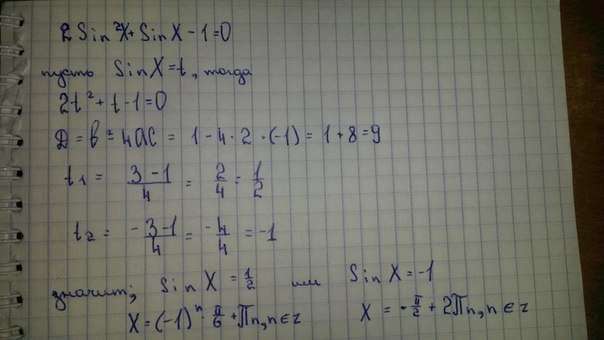 2Sin²X+SinX-1=0
пусть SinX=t, тогда
2t²+t-1=0
D=b²-4ac = 1-4·2·(-1)=1+8=9
t₁ = (3-1)/4 = 2/4 = 1/2
t₂ = (-3-1)/4 = -4/4 = -1
значит; SinX = 1/2 или SinX=-1
X=(-1)ⁿ·π/6+πn, n∈z X = -π/2+2πn, n∈z